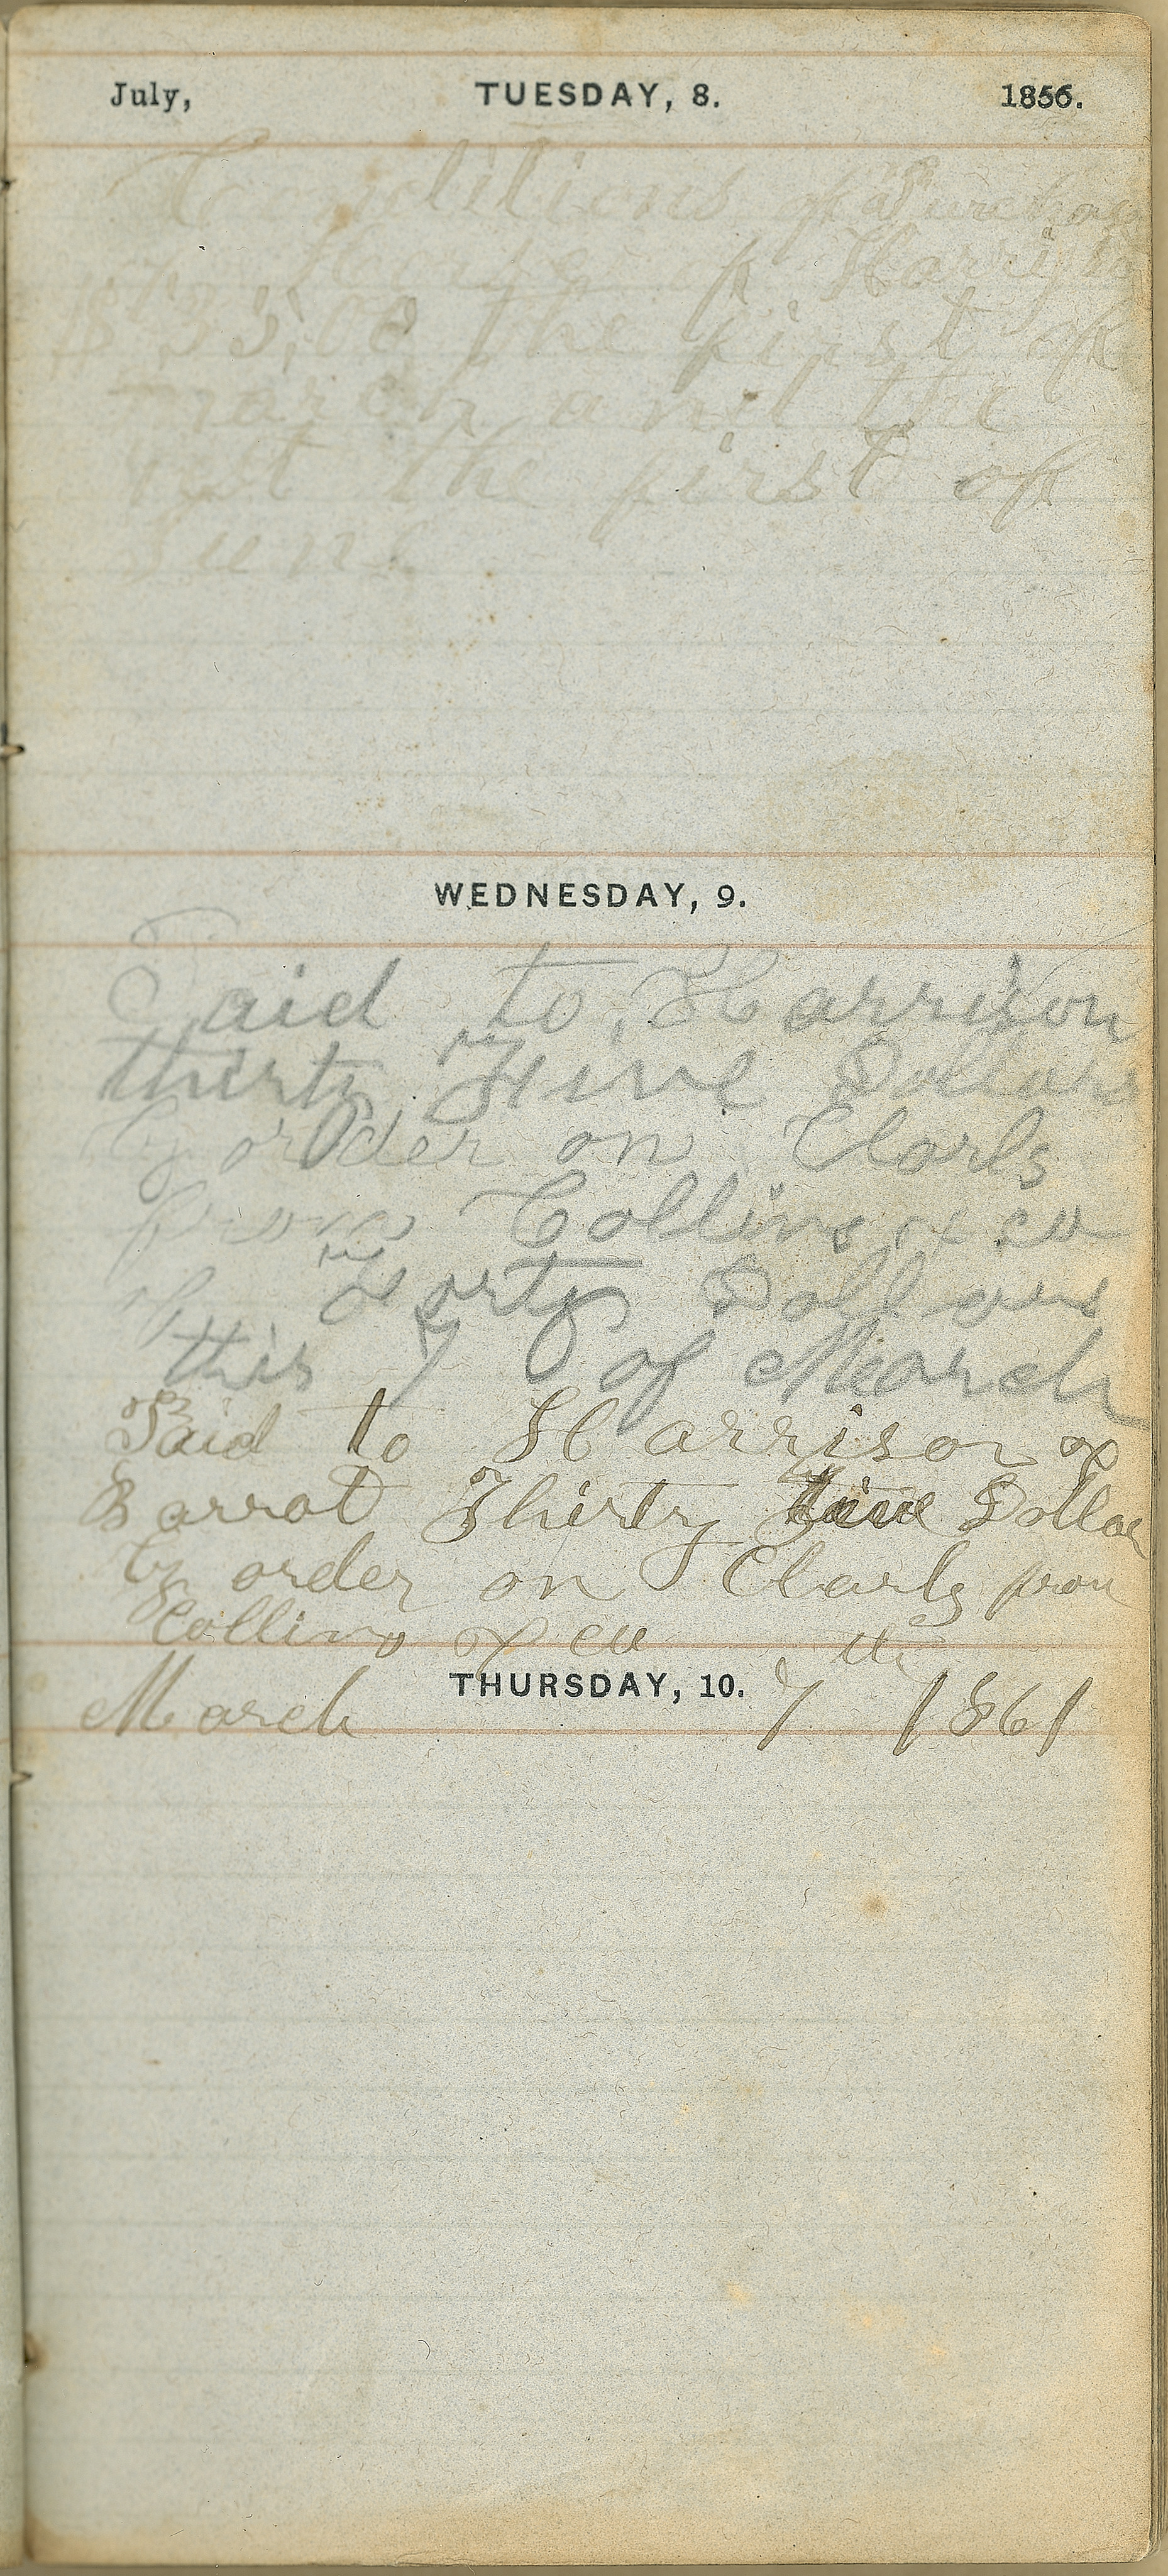 July, TUESDAY, 8. 1856.
Conditions of Purchas
of Harris
$35,00 the first of
march and the
rest the first of
June
WEDNESDAY, 9.
Paid to Harrison
thirty Five Dollars
By order on Clarks
from Collins & co
of Forty Dollars
this 7 of March
Paid to Harrison &
Barrot Thirty five Dollar
By order on Clarks from
Collins & co
THURSDAY, 10.
March 7th 1861